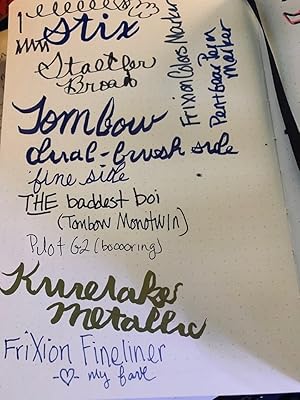 Stix
Staedtler
Broad
Tombow
dual-brush side
fine side
THE baddest boi
(Tombow Monotwin)
Pilot G2 (boooring)
Kuretake
Metallic
FriXion Fineliner
-♡- my fave
Frixion Colors Marker
Pentel
Marker